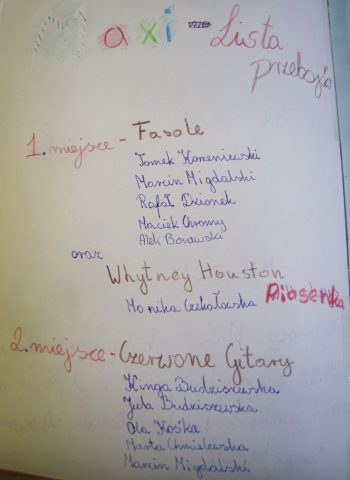 axi - Lista
przebojów
1. miejsce - Fasole
Tomek Korzeniewski
Marcin Migdalski
Rafał Dzionek
Maciek Chromy
Alek Borawski
oraz
Whytney Houston
Monika Czekołowska piosenka
2. miejsce - Czerwone Gitary
Kinga Budziszewska
Julia Budziszewska
Ola Kośka
Marta Chmielewska
Marcin Migdalski